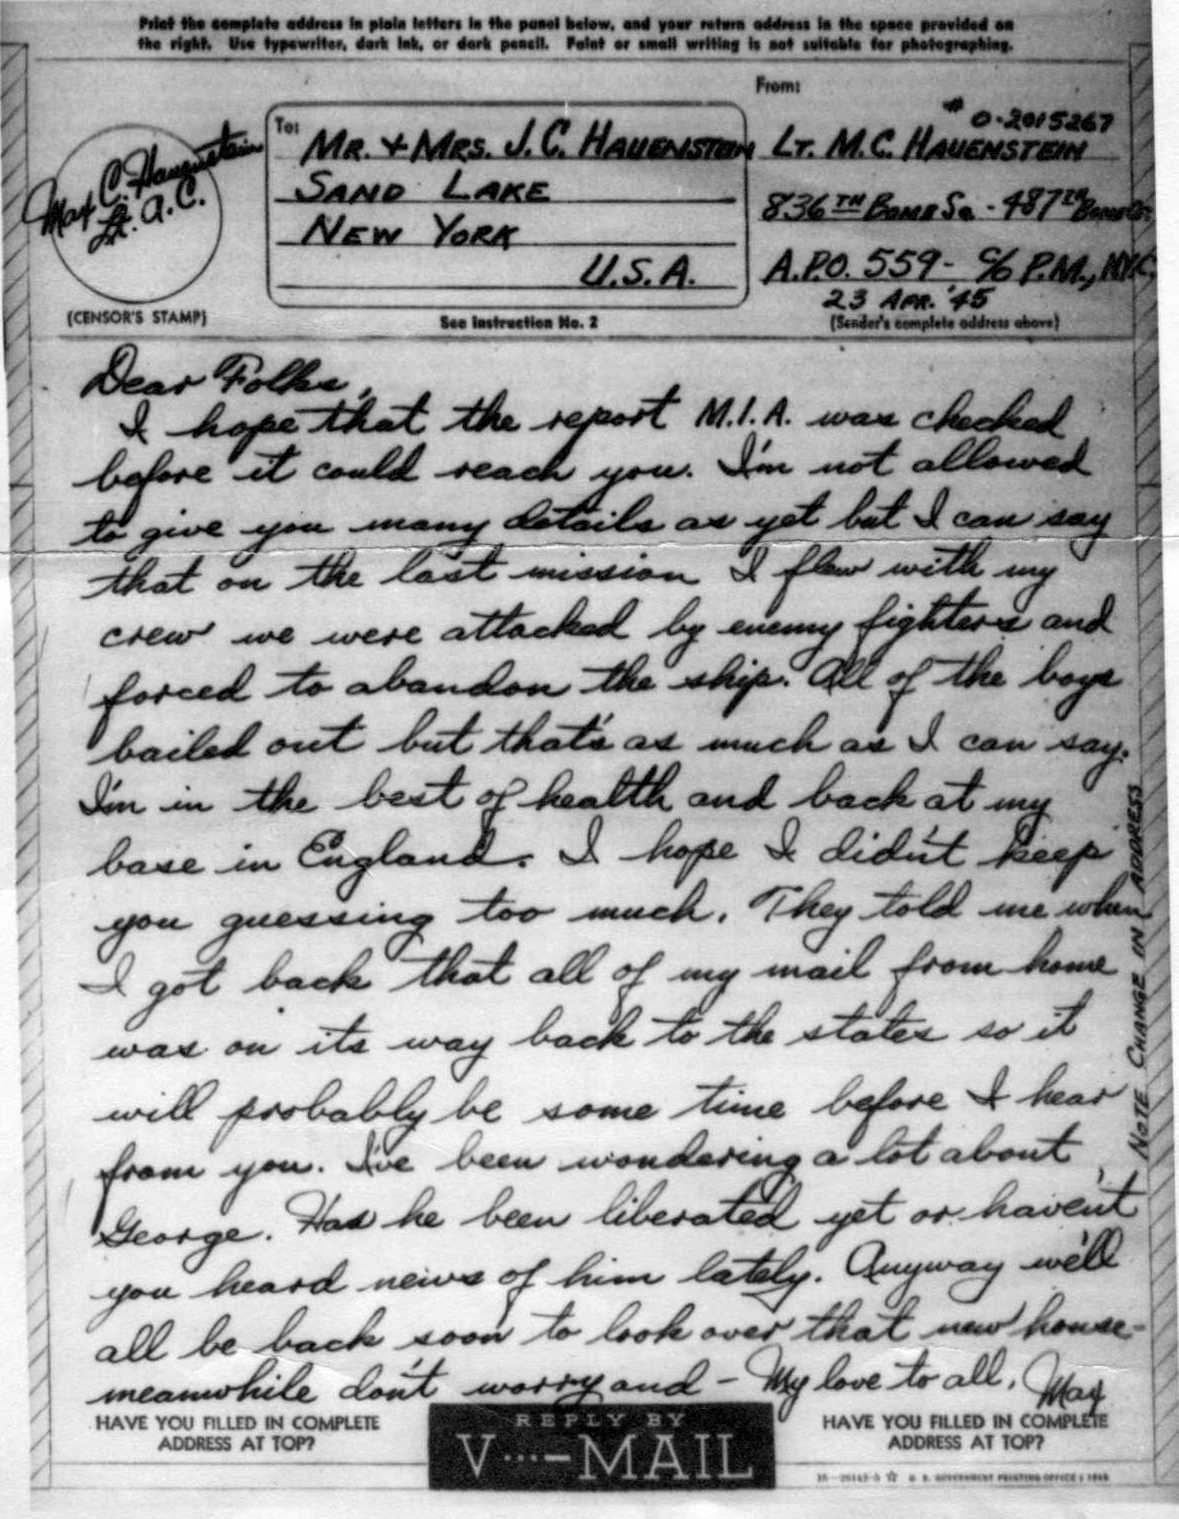 Print the complete address in plain letters in the panel below, and your return address in the space provided on
the right. Use typewriter, dark ink, or dark pencil. Faint or small writing is not suitable for photographing.
From:
To:
# O-2015267
MR. & MRS. J. C. HAUENSTEIN
LT. M. C. HAUENSTEIN
Max C. Hauenstein
Lt. A.C.
SAND LAKE
836TH BOMB SQ. - 487TH BOMB GP.
NEW YORK
U.S.A.
A.P.O. 559- C/O P.M., NYC
23 APR. '45
(CENSOR'S STAMP)
See Instruction No. 2
(Sender's complete address above)
Dear Folks,
I hope that the report M.I.A. was checked
before it could reach you. I'm not allowed
to give you many details as yet but I can say
that on the last mission I flew with my
crew we were attacked by enemy fighters and
forced to abandon the ship. All of the boys
bailed out but that's as much as I can say.
I'm in the best of health and back at my
base in England. I hope I didn't keep
you guessing too much. They told me when
I got back that all of my mail from home
was on its way back to the states so it
will probably be some time before I hear
from you. I've been wondering a lot about
George. Has he been liberated yet or haven't
you heard news of him lately. Anyway we'll
all be back soon to look over that new house-
meanwhile don't worry and - My love to all, Max
NOTE CHANGE IN ADDRESS
HAVE YOU FILLED IN COMPLETE
ADDRESS AT TOP?
REPLY BY
V···—MAIL
HAVE YOU FILLED IN COMPLETE
ADDRESS AT TOP?
16—28143-5 ☆ U. S. GOVERNMENT PRINTING OFFICE : 1943